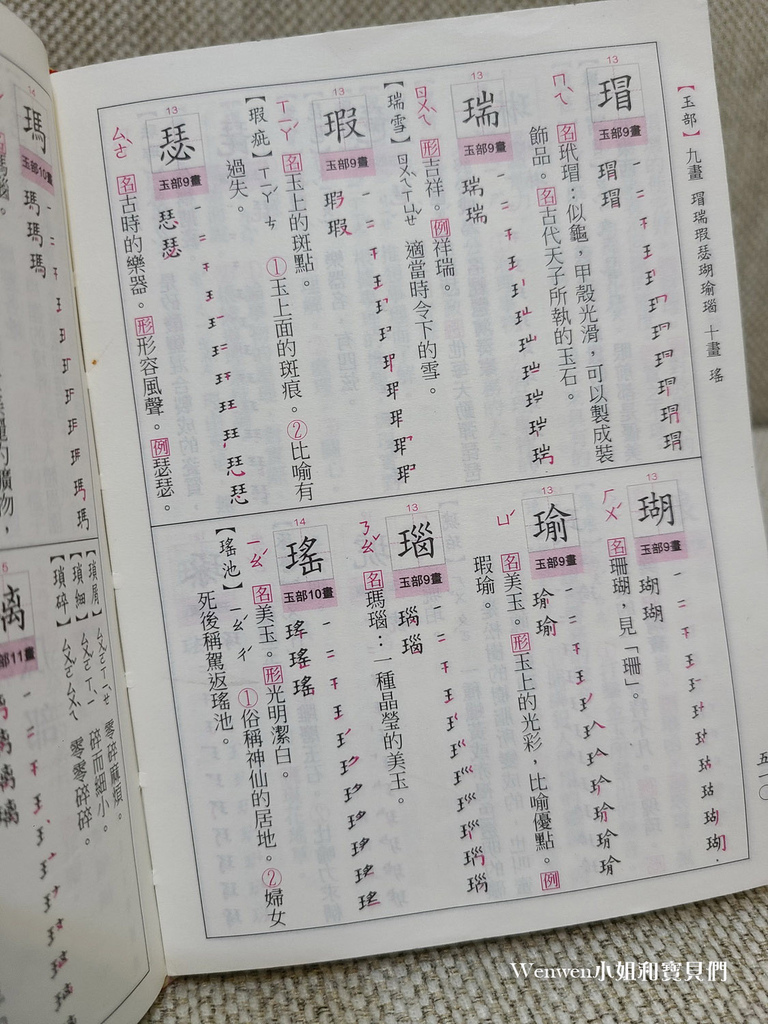 【玉部】 九畫 瑁瑞瑕瑟瑚瑜瑙 十畫 瑤
五一〇
13
瑁
玉部9畫
瑁瑁
ㄇㄟˋ
名玳瑁：似龜，甲殼光滑，可以製成裝
飾品。名古代天子所執的玉石。
13
瑞
玉部9畫
瑞瑞
ㄖㄨㄟˋ
形吉祥。例祥瑞。
【瑞雪】ㄖㄨㄟˋ ㄒㄩㄝˇ 適當時令下的雪。
13
瑕
玉部9畫
瑕瑕
ㄒㄧㄚˊ
名玉上的斑點。
【瑕疵】ㄒㄧㄚˊ ㄘ ①玉上面的斑痕。②比喻有
過失。
13
瑟
玉部9畫
瑟瑟
ㄙㄜˋ
名古時的樂器。形形容風聲。例瑟瑟。
13
瑚
玉部9畫
瑚瑚
ㄏㄨˊ
名珊瑚，見「珊」。
13
瑜
玉部9畫
瑜瑜
ㄩˊ
名美玉。形玉上的光彩，比喻優點。例
瑕瑜。
13
瑙
玉部9畫
瑙瑙
ㄋㄠˇ
名瑪瑙：一種晶瑩的美玉。
14
瑤
玉部10畫
瑤瑤瑤
ㄧㄠˊ
名美玉。形光明潔白。
【瑤池】ㄧㄠˊ ㄔˊ ①俗稱神仙的居地。②婦女
死後稱駕返瑤池。
14
瑪
玉部10畫
瑪瑪瑪
部11畫
【瑣屑】ㄙㄨㄛˇ ㄒㄧㄝˋ 零碎麻煩。
【瑣細】ㄙㄨㄛˇ ㄒㄧˋ 碎而細小。
【瑣碎】ㄙㄨㄛˇ ㄙㄨㄟˋ 零零碎碎。
Wenwen小姐和寶貝們